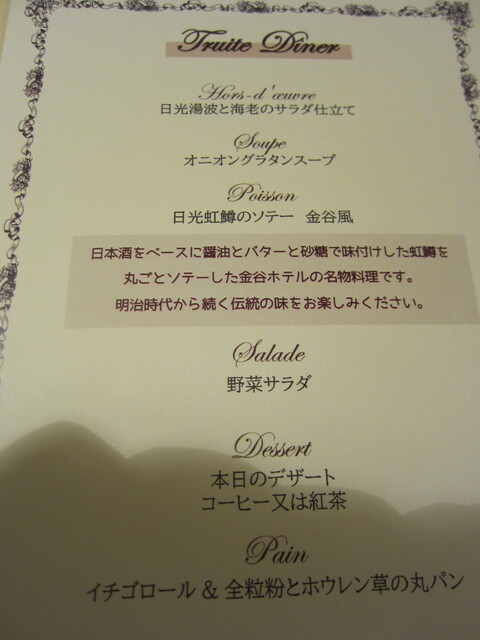 Truite Dîner
Hors-d'œuvre
日光湯波と海老のサラダ仕立て
Soupe
オニオングラタンスープ
Poisson
日光虹鱒のソテー 金谷風
日本酒をベースに醤油とバターと砂糖で味付けした虹鱒を
丸ごとソテーした金谷ホテルの名物料理です。
明治時代から続く伝統の味をお楽しみください。
Salade
野菜サラダ
Dessert
本日のデザート
コーヒー又は紅茶
Pain
イチゴロール & 全粒粉とホウレン草の丸パン